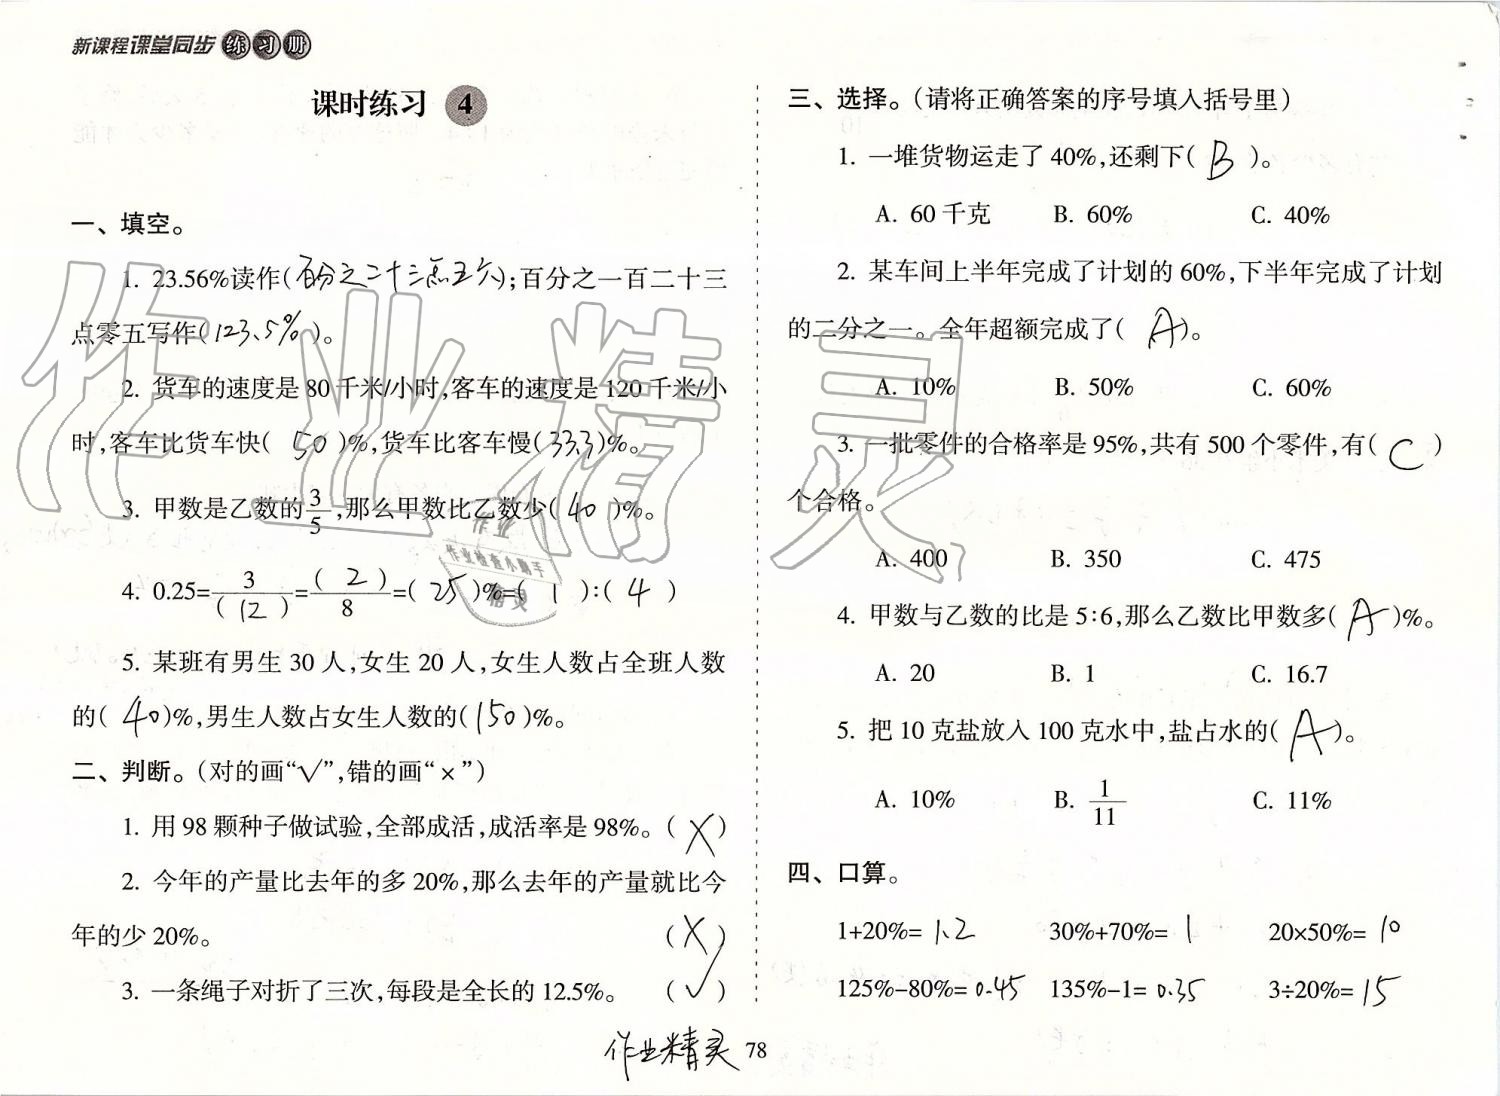 新课程课堂同步练习册
课时练习 4
一、填空。
1. 23.56%读作(百分之二十三点五六);百分之一百二十三
点零五写作(123.5%)。
2. 货车的速度是80千米/小时,客车的速度是120千米/小
时,客车比货车快( 50 )%,货车比客车慢(33.3)%。
3. 甲数是乙数的3/5,那么甲数比乙数少( 40 )%。
4. 0.25=3/(12)=(2)/8=(25)%=( 1 ):( 4 )
5. 某班有男生30人,女生20人,女生人数占全班人数
的( 40)%,男生人数占女生人数的(150)%。
二、判断。(对的画“√”,错的画“×”)
1. 用98颗种子做试验,全部成活,成活率是98%。( X )
2. 今年的产量比去年的多20%,那么去年的产量就比今
年的少20%。 ( X )
3. 一条绳子对折了三次,每段是全长的12.5%。 ( √ )
三、选择。(请将正确答案的序号填入括号里)
1. 一堆货物运走了40%,还剩下( B )。
A. 60千克 B. 60% C. 40%
2. 某车间上半年完成了计划的60%,下半年完成了计划
的二分之一。全年超额完成了( A )。
A. 10% B. 50% C. 60%
3. 一批零件的合格率是95%,共有500个零件,有( C )
个合格。
A. 400 B. 350 C. 475
4. 甲数与乙数的比是5:6,那么乙数比甲数多( A )%。
A. 20 B. 1 C. 16.7
5. 把10克盐放入100克水中,盐占水的( A )。
A. 10% B. 1/11 C. 11%
四、口算。
1+20%= 1.2 30%+70%= 1 20×50%= 10
125%-80%= 0.45 135%-1= 0.35 3÷20%= 15
作业精灵
78
作业精灵
作业检查小助手
精灵